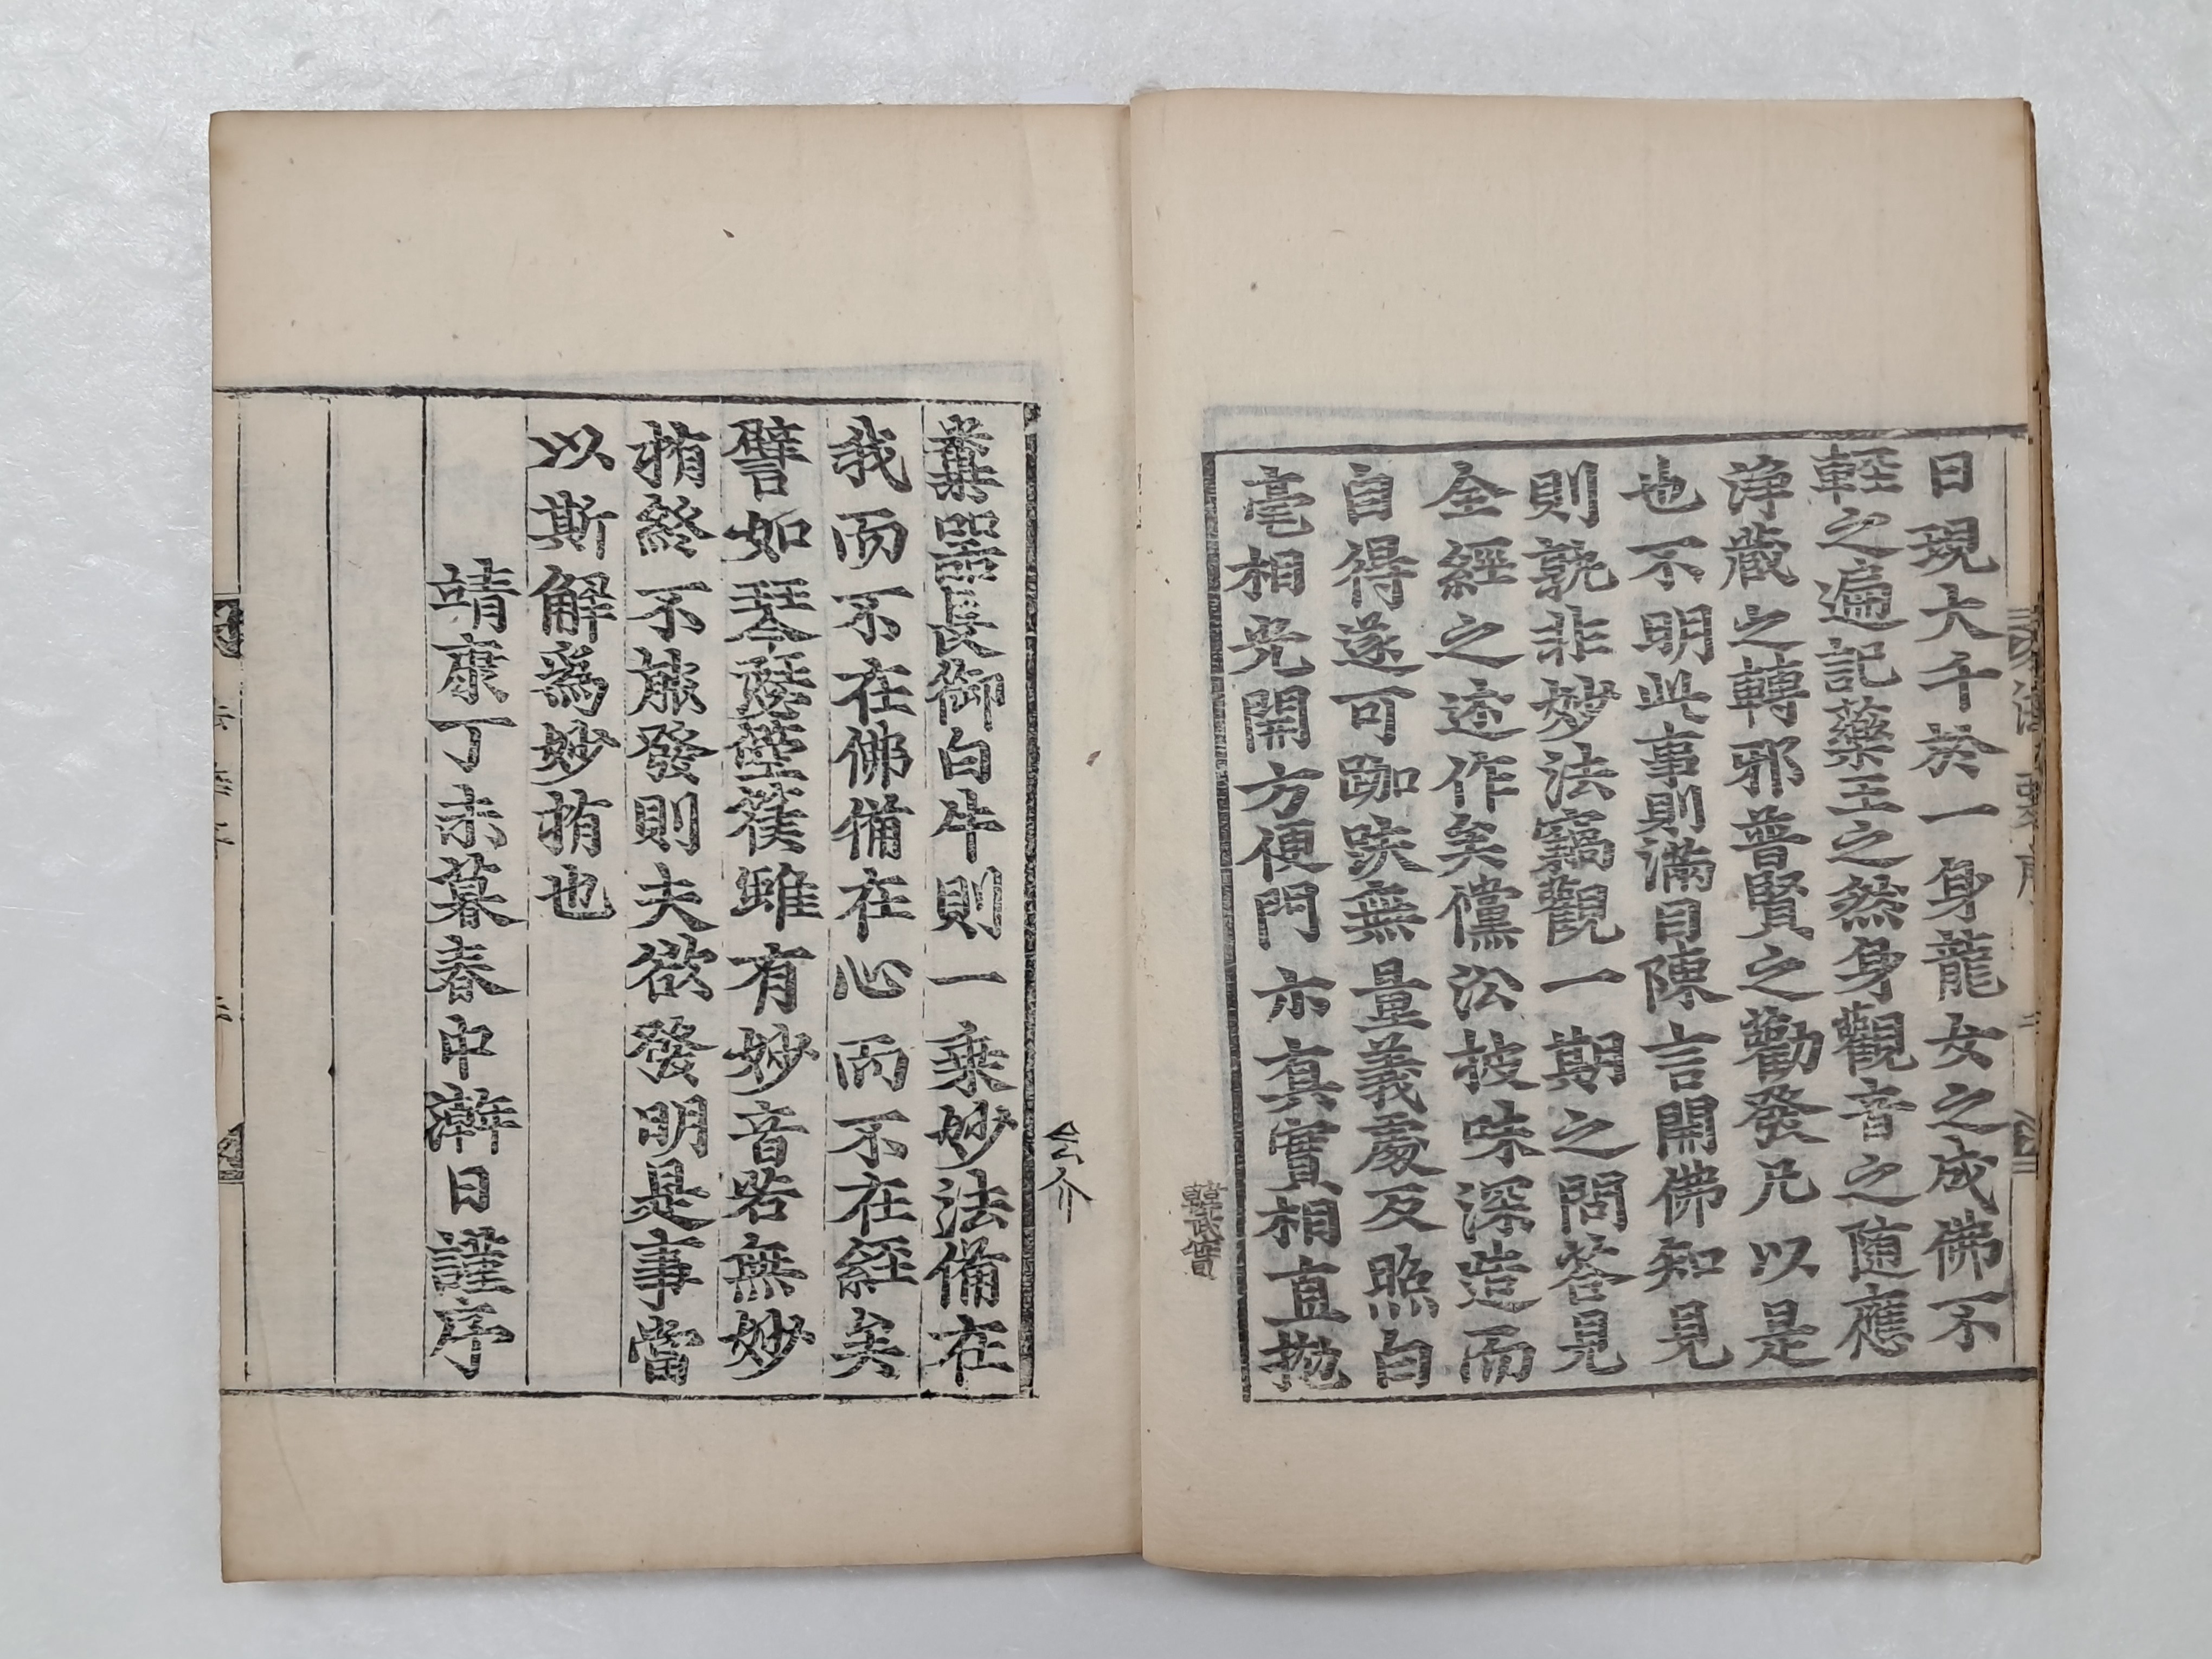 日現大千於一身龍女之成佛不
輕之遍記藥王之然身觀音之随應
淨藏之轉邪普賢之勸發凡以是
也不明此事則滿目陳言開佛知見
則孰非妙法竊觀一期之問荅見
全經之述作矣儻㳂披味深造而
自得遂可跏趺無量義處反照自
毫相光開方便門亦真實相直抛
糞器長御白牛則一乗妙法備在
我而不在佛備在心而不在經矣
譬如琴瑟箜篌雖有妙音若無妙
指終不能發則夫欲發明是事當
以斯解爲妙指也
靖康丁未暮春中澣日謹序